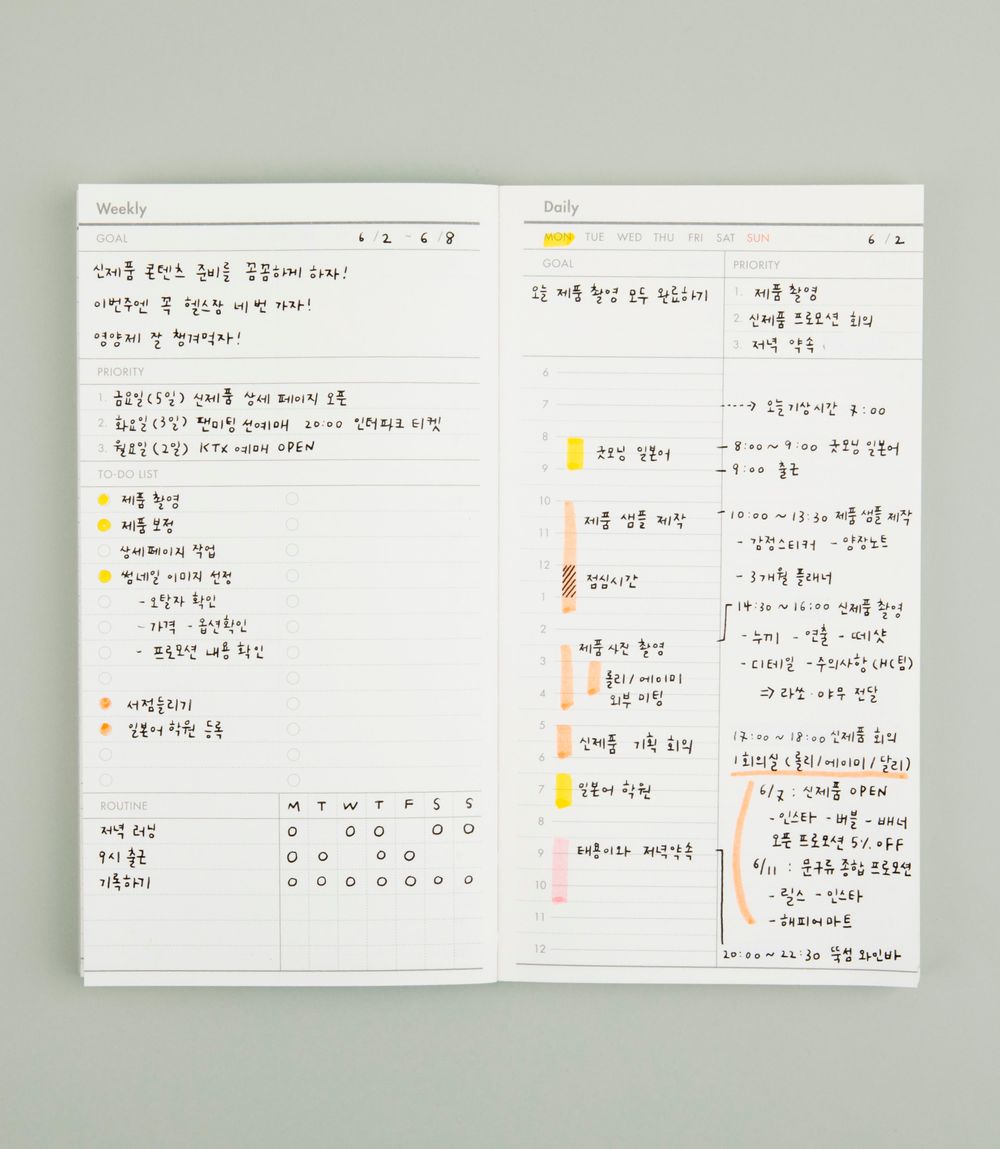 Weekly
GOAL 6 / 2 ~ 6 / 8
신제품 콘텐츠 준비를 꼼꼼하게 하자!
이번주엔 꼭 헬스장 네 번 가자!
영양제 잘 챙겨먹자!
PRIORITY
1. 금요일(5일) 신제품 상세 페이지 오픈
2. 화요일(3일) 팬미팅 선예매 20:00 인터파크 티켓
3. 월요일(2일) KTX 예매 OPEN
TO-DO LIST
제품 촬영
제품 보정
상세페이지 작업
썸네일 이미지 선정
- 오탈자 확인
- 가격 - 옵션확인
- 프로모션 내용 확인
서점들리기
일본어 학원 등록
ROUTINE M T W T F S S
저녁 러닝 O O O O O
9시 출근 O O O O
기록하기 O O O O O O O
Daily
MON TUE WED THU FRI SAT SUN 6 / 2
GOAL
오늘 제품 촬영 모두 완료하기
PRIORITY
1. 제품 촬영
2. 신제품 프로모션 회의
3. 저녁 약속
6
7
8
굿모닝 일본어
9
10
제품 샘플 제작
11
12
점심시간
1
2
제품사진 촬영
3
롤리/에이미
4
외부 미팅
5
신제품 기획 회의
6
7
일본어 학원
8
9
태용이와 저녁약속
10
11
12
----> 오늘기상시간 7:00
- 8:00 ~ 9:00 굿모닝 일본어
- 9:00 출근
- 10:00 ~ 13:30 제품샘플 제작
- 감정스티커 - 양장노트
- 3개월 플래너
14:30 ~ 16:00 신제품 촬영
- 누끼 - 연출 - 떼샷
- 디테일 - 주의사항 (H(팀)
⇒ 라쏘·야무 전달
17:00 ~ 18:00 신제품 회의
1회의실 (롤리/에이미/달리)
6/7 : 신제품 OPEN
- 인스타 - 버블 - 배너
오픈 프로모션 5% OFF
6/11 : 문구류 종합 프로모션
- 릴스 - 인스타
- 해피어마트
20:00 ~ 22:30 뚝섬 와인바